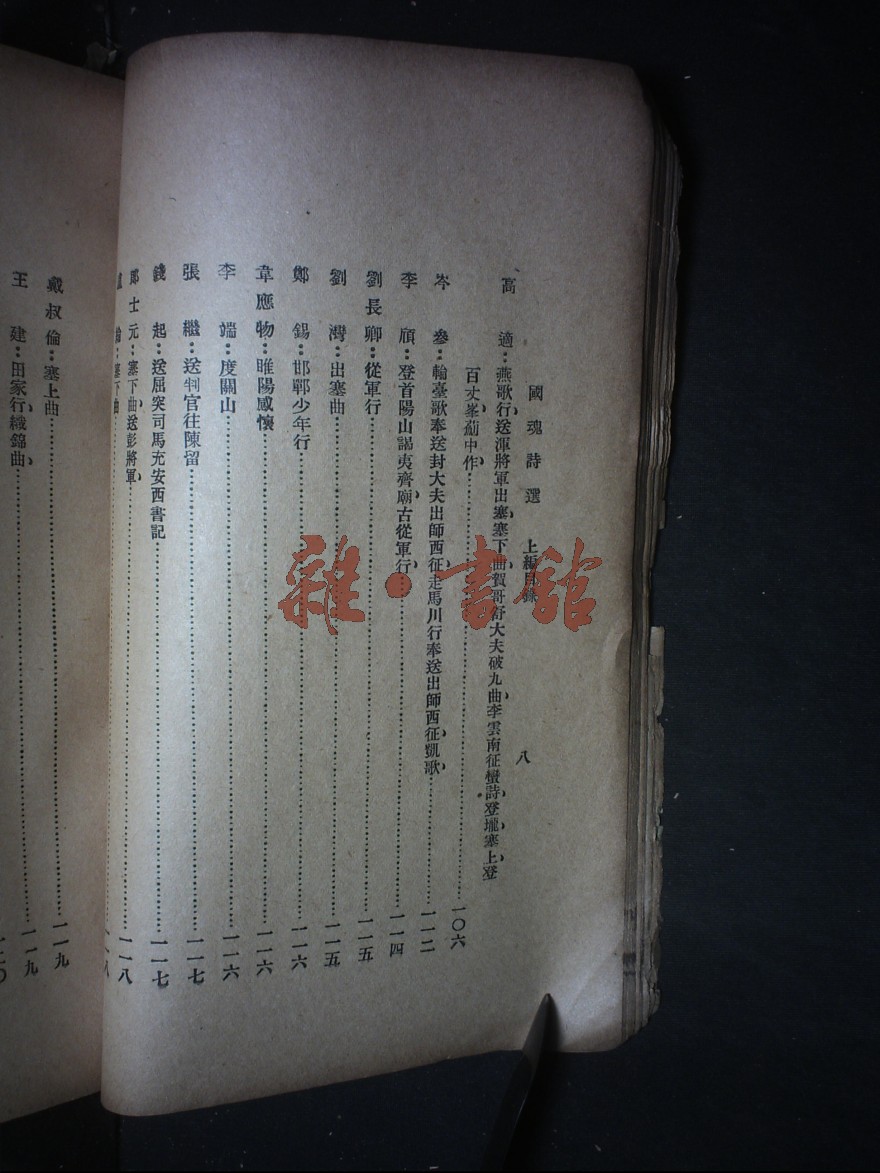 國魂詩選　上編目錄　八
高　適：燕歌行、送渾將軍出塞、塞下曲、賀哥舒大夫破九曲、李雲南征蠻詩、登壠、塞上、登
百丈峯、薊中作……一〇六
岑　參：輪臺歌奉送封大夫出師西征、走馬川行奉送出師西征、凱歌……一一二
李　頎：登首陽山謁夷齊廟、古從軍行……一一四
劉長卿：從軍行……一一五
劉　灣：出塞曲……一一五
鄭　錫：邯鄲少年行……一一六
韋應物：睢陽感懷……一一六
李　端：度關山……一一六
張　繼：送判官往陳留……一一七
錢　起：送屈突司馬充安西書記……一一七
郎士元：塞下曲、送彭將軍……一一八
綸：塞下曲……一一八
戴叔倫：塞上曲……一一九
王　建：田家行、織錦曲、……一一九
一二〇
雜·書館